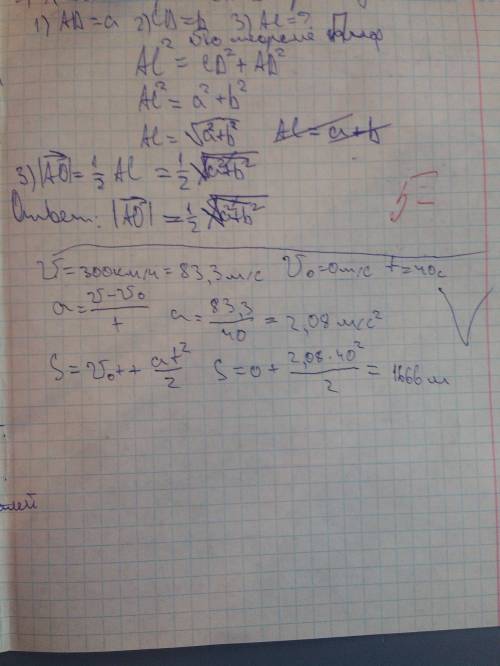 1) AD=a 2) CD=b 3) AC=?
по теореме Пиф
AC² = CD² + AD²
AC² = a² + b²
AC = √a²+b² AC = a+b
3) |AO| = ½ AC = ½ √a²+b²
Ответ: |AO| = ½ √a²+b²
5=
V=300км/ч=83,3м/с V₀=0м/с t=40с
a = (V-V₀)/t a = 83,3/40 = 2,08 м/с²
S = V₀t + at²/2 S = 0 + 2,08·40²/2 = 1666м